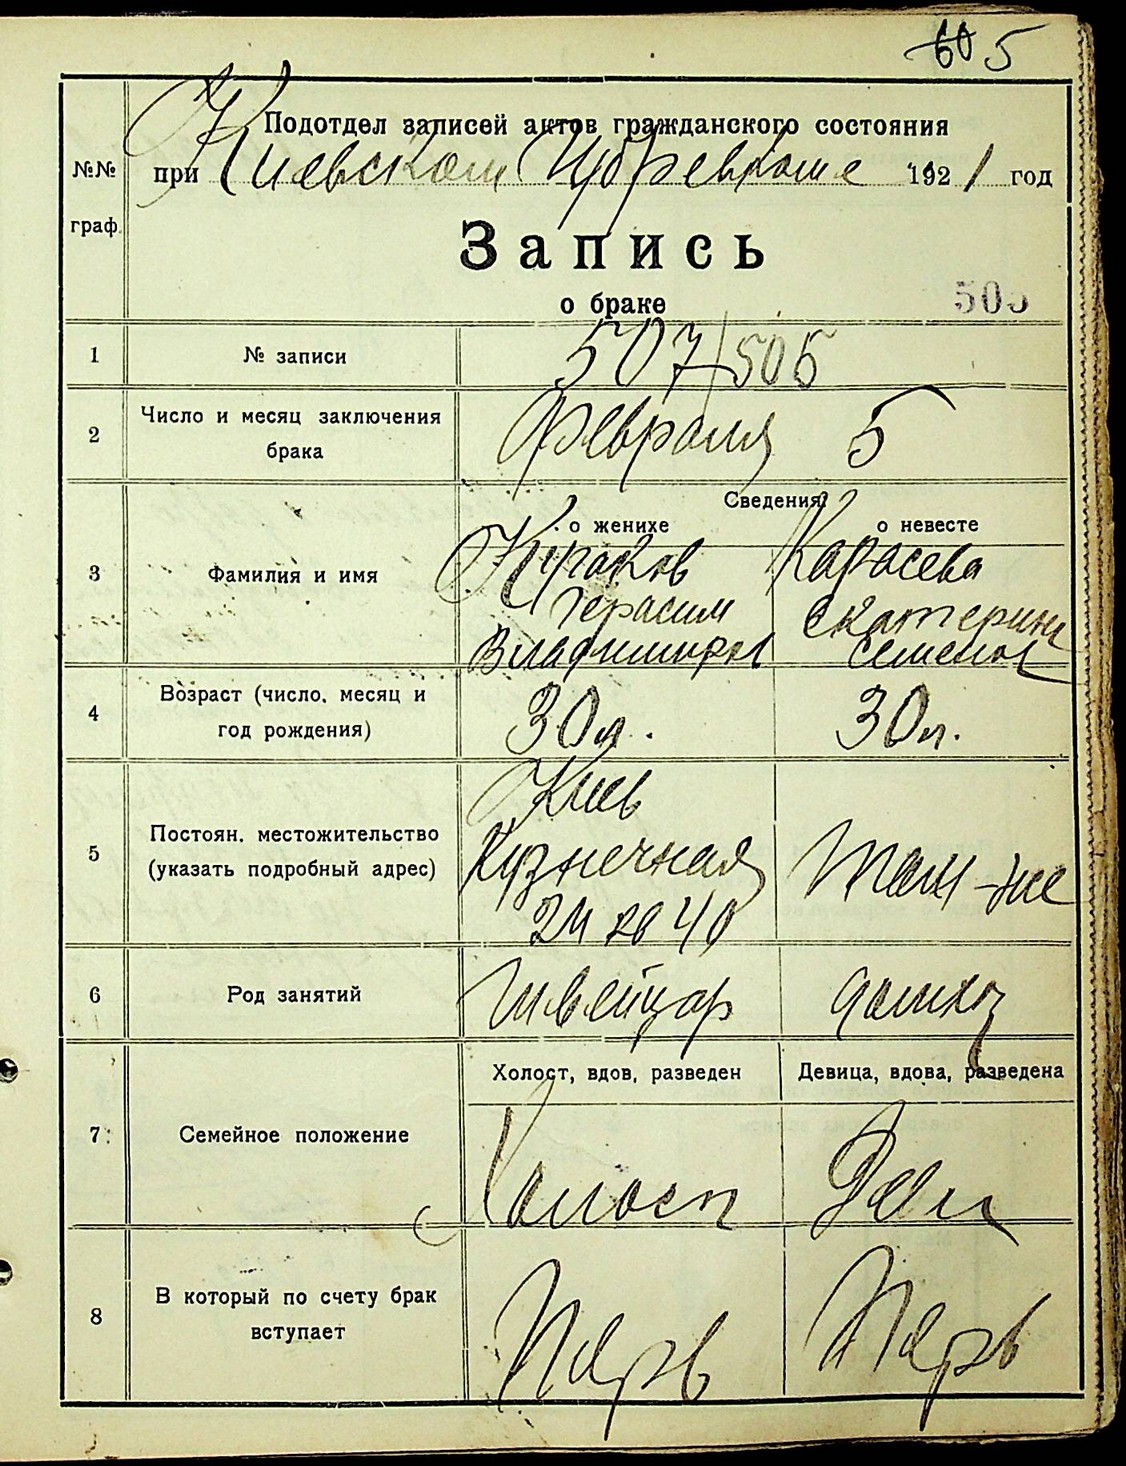 60 5
Подотдел записей актов гражданского состояния
№№ граф.
при Киевском Губревкоме 1921 год
Запись
о браке
505
1 № записи 507/505
2 Число и месяц заключения брака Февраля 5
Сведения:
о женихе о невесте
3 Фамилия и имя
Карасева
Герасим Екатерина
Владимиров Семенов
4 Возраст (число, месяц и год рождения) 30 л. 30 л.
5 Постоян. местожительство (указать подробный адрес)
Киев
Кузнечная Там-же
24 кв 40
6 Род занятий Швейцар домхоз
Холост, вдов, разведен Девица, вдова, разведена
7 Семейное положение Холост Дев
8 В который по счету брак вступает Перв Перв